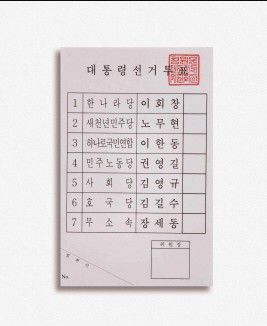 대통령선거투표
1 한나라당 이회창
2 새천년민주당 노무현
3 하나로국민연합 이한동
4 민주노동당 권영길
5 사회당 김영규
6 호국당 김길수
7 무소속 장세동
위원장
No.